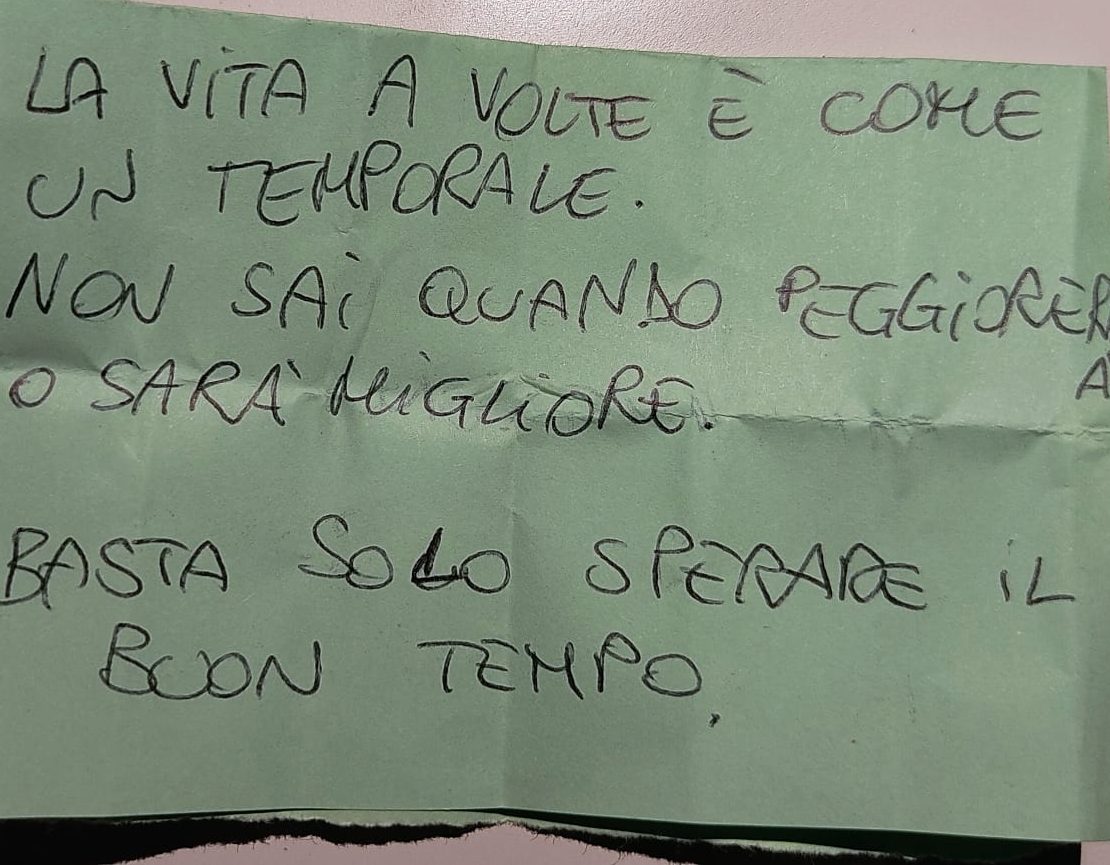 LA VITA A VOLTE È COME
UN TEMPORALE.
NON SAI QUANDO PEGGIORER
A
O SARA' MIGLIORE.
BASTA SOLO SPERARE IL
BUON TEMPO.